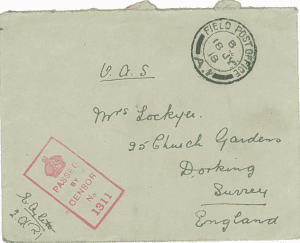 FIELD POST OFFICE
8
18 JY
18
A.4
O.A.S
Mrs Lockyer.
95 Church Gardens
Dorking
Surrey
England
PASSED
BY
CENSOR
No
1311